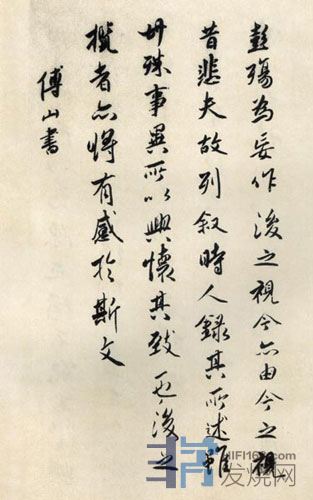 彭殤為妄作後之視今亦由今之視
昔悲夫故列叙時人錄其所述雖
世殊事異所以興懷其致一也後之
攬者亦將有感於斯文
傅山書
HIFI168.com
发烧网